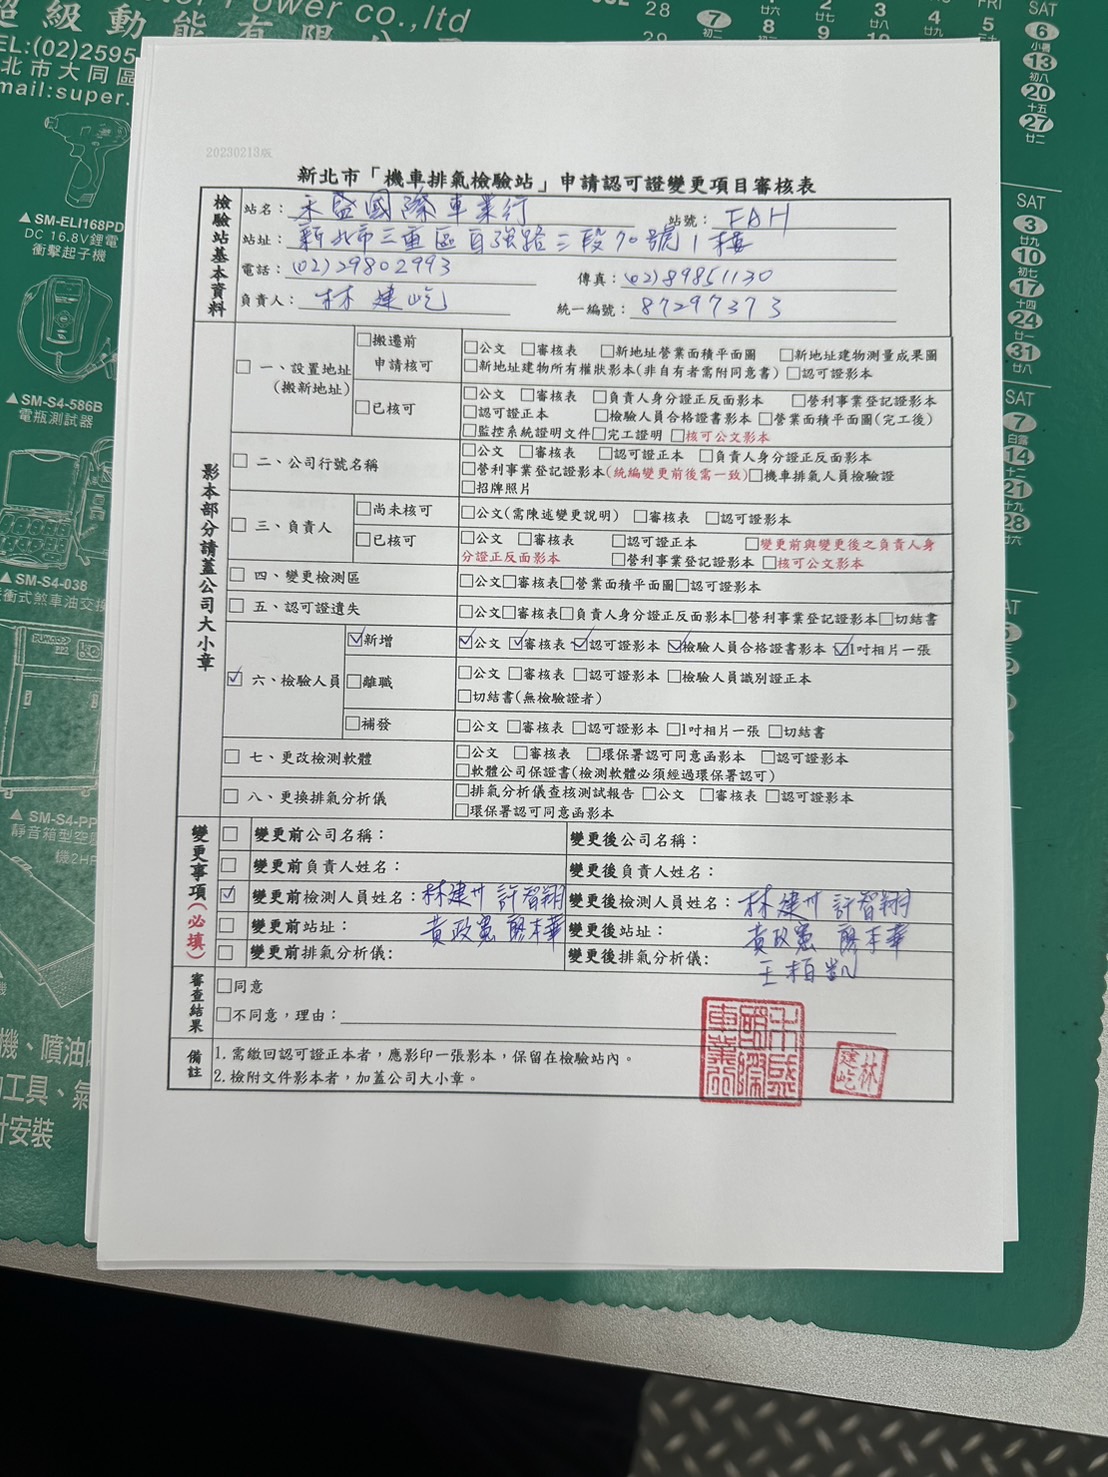 er Power co.,ltd
超級動能有限公司
EL:(02)2595
北市大同區
mail:super.
▲SM-ELI168PD
DC 16.8V鋰電
衝擊起子機
▲SM-S4-586B
電瓶測試器
▲SM-S4-038
衝式煞車油交換
▲SM-S4-PP
靜音箱型空壓
機2HP
機、噴油
工具、氣
計安裝
28
29
FRI
SAT
7
8
9
10
4
5
6
13
20
27
SAT
3
10
17
24
31
SAT
7
14
21
28
20230213版
新北市「機車排氣檢驗站」申請認可證變更項目審核表
檢驗站基本資料
站名：永盛國際車業行 站號：FAH
站址：新北市三重區自強路三段70號1樓
電話：(02)29802993 傳真：(02)89851130
負責人：林建屹 統一編號：87297373
影本部分請蓋公司大小章
□一、設置地址(搬新地址)
□搬遷前申請核可
□公文 □審核表 □新地址營業面積平面圖 □新地址建物測量成果圖
□新地址建物所有權狀影本(非自有者需附同意書) □認可證影本
□已核可
□公文 □審核表 □負責人身分證正反面影本 □營利事業登記證影本
□認可證正本 □檢驗人員合格證書影本 □營業面積平面圖(完工後)
□監控系統證明文件 □完工證明 □核可公文影本
□二、公司行號名稱
□公文 □審核表 □認可證正本 □負責人身分證正反面影本
□營利事業登記證影本(統編變更前後需一致) □機車排氣人員檢驗證
□招牌照片
□三、負責人
□尚未核可
□公文(需陳述變更說明) □審核表 □認可證影本
□已核可
□公文 □審核表 □認可證正本 □變更前與變更後之負責人身
分證正反面影本 □營利事業登記證影本 □核可公文影本
□四、變更檢測區
□公文□審核表□營業面積平面圖□認可證影本
□五、認可證遺失
□公文□審核表□負責人身分證正反面影本□營利事業登記證影本□切結書
☑六、檢驗人員
☑新增
☑公文 ☑審核表 ☑認可證影本 ☑檢驗人員合格證書影本 ☑1吋相片一張
□離職
□公文 □審核表 □認可證影本 □檢驗人員識別證正本
□切結書(無檢驗證者)
□補發
□公文 □審核表 □認可證影本 □1吋相片一張 □切結書
□七、更改檢測軟體
□公文 □審核表 □環保署認可同意函影本 □認可證影本
□軟體公司保證書(檢測軟體必須經過環保署認可)
□八、更換排氣分析儀
□排氣分析儀查核測試報告 □公文 □審核表 □認可證影本
□環保署認可同意函影本
變更事項(必填)
□ 變更前公司名稱： 變更後公司名稱：
□ 變更前負責人姓名： 變更後負責人姓名：
☑ 變更前檢測人員姓名：林建州 許智翔 變更後檢測人員姓名：林建州 許智翔
□ 變更前站址： 黃政憲 廖本華 變更後站址： 黃政憲 廖本華
□ 變更前排氣分析儀： 變更後排氣分析儀： 王柏凱
審查結果
□同意
□不同意，理由：
備註
1.需繳回認可證正本者，應影印一張影本，保留在檢驗站內。
2.檢附文件影本者，加蓋公司大小章。
永盛國際車業行
林建屹